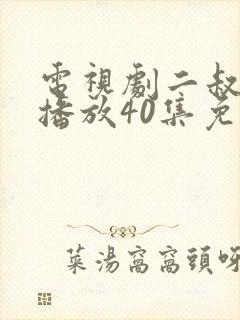 電視劇二叔
播放40集免
菜湯窩窩頭呀